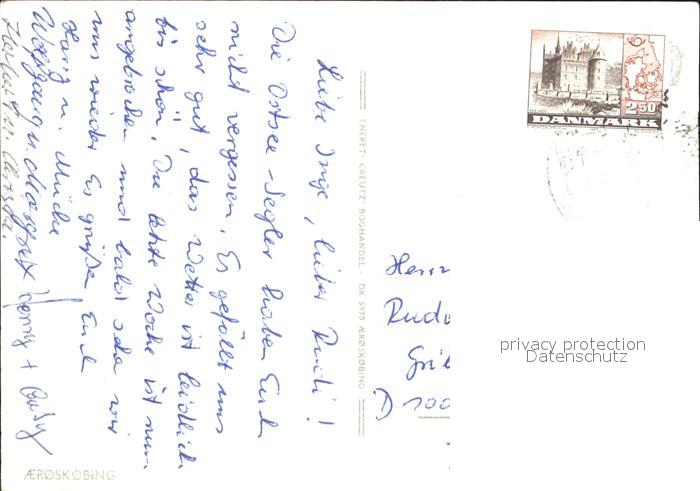 Liebe Inge, lieber Rudi!
Die Ostsee-Segler haben Euch
nicht vergessen. Es gefällt uns
sehr gut, das Wetter ist leidlich
bis schön. Die letzte Woche ist nun
angebrochen und bald sehen wir
uns wieder. Es grüßen Euch
Hansi u. Mücke
Wolfgang u. Margret Henny +
Herbert u. Christa.
ENERET: CREUTZ BOGHANDEL. DK 5970 ÆRØSKØBING
ÆRØSKØBING
2.50
DANMARK
Herrn
privacy protection
Datenschutz